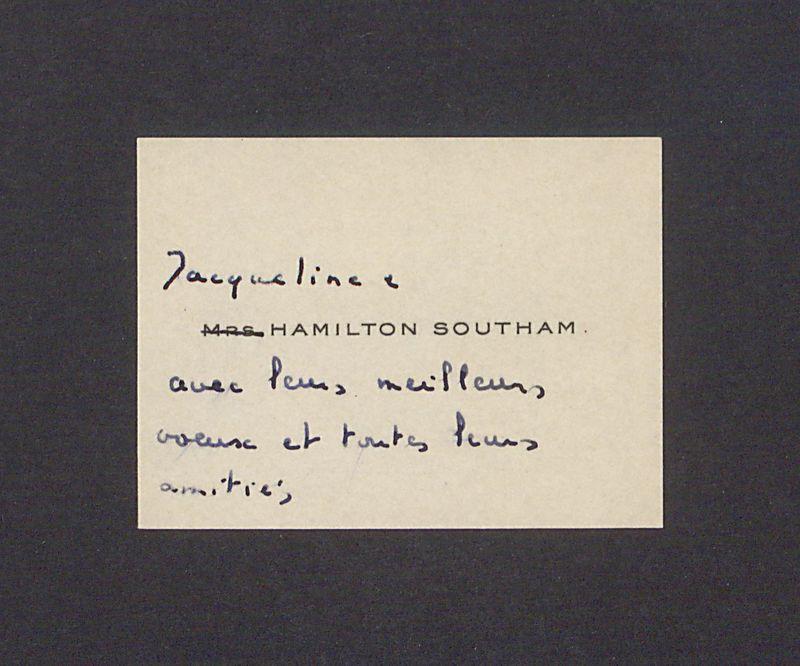 Jacqueline &
Mrs. HAMILTON SOUTHAM.
avec leurs meilleurs
voeux et toutes leurs
amitiés